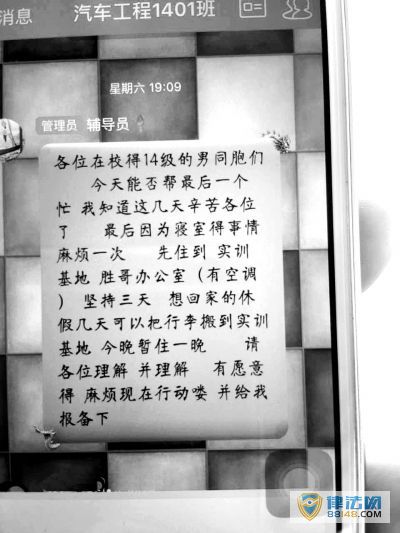 消息
汽车工程1401班
星期六 19:09
管理员 辅导员
各位在校得14级的男同胞们
今天能否帮最后一个
忙 我知道这几天辛苦各位
了 最后因为寝室得事情
麻烦一次 先住到 实训
基地 胜哥办公室（有空调
） 坚持三天 想回家的休
假几天可以把行李搬到实训
基地 今晚暂住一晚 请
各位理解 并理解 有愿意
得 麻烦现在行动喽 并给我
报备下
律法网
88148.COM